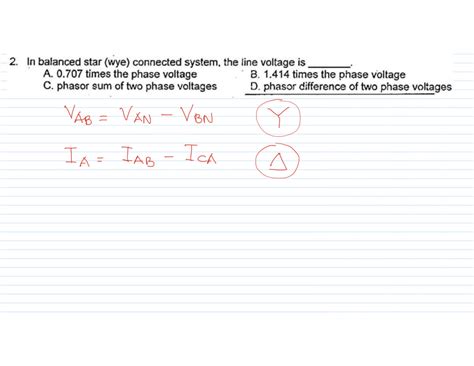 2. In balanced star (wye) connected system, the line voltage is ________.
A. 0.707 times the phase voltage B. 1.414 times the phase voltage
C. phasor sum of two phase voltages D. phasor difference of two phase voltages
V_AB = V_AN − V_BN Y
I_A = I_AB − I_CA Δ